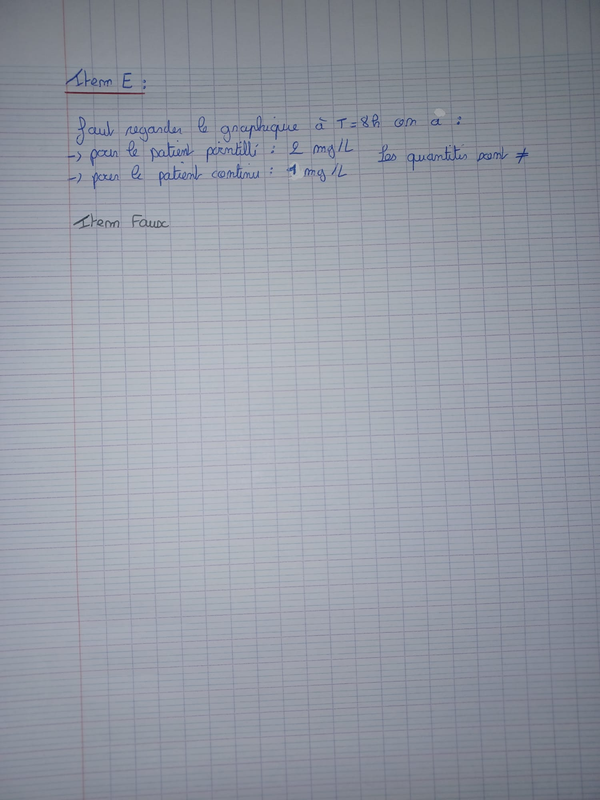 Item E :
faut regarder le graphique à T = 8h on a :
-> pour le patient pointillé : 2 mg/L Les quantités sont ≠
-> pour le patient continu : 1 mg/L
Item Faux